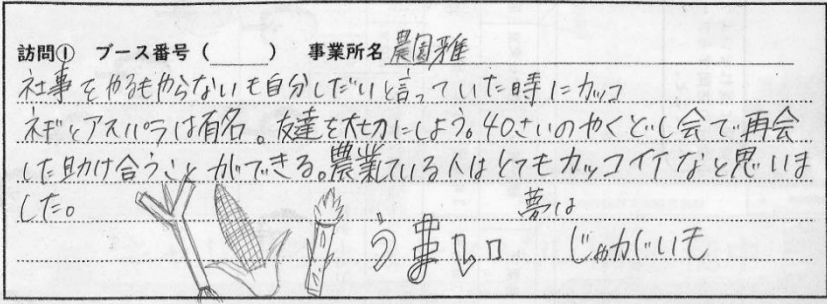 訪問① ブース番号（　　） 事業所名 農園雅
社事をやるもやらないも自分しだいと言っていた時にカッコ
ネギとアスパラは有名。友達を大切にしよう。40さいのやくどし会で再会
した助け合うことができる。農業している人はとてもカッコイイなと思いま
した。 夢は
うまい じゃがいも